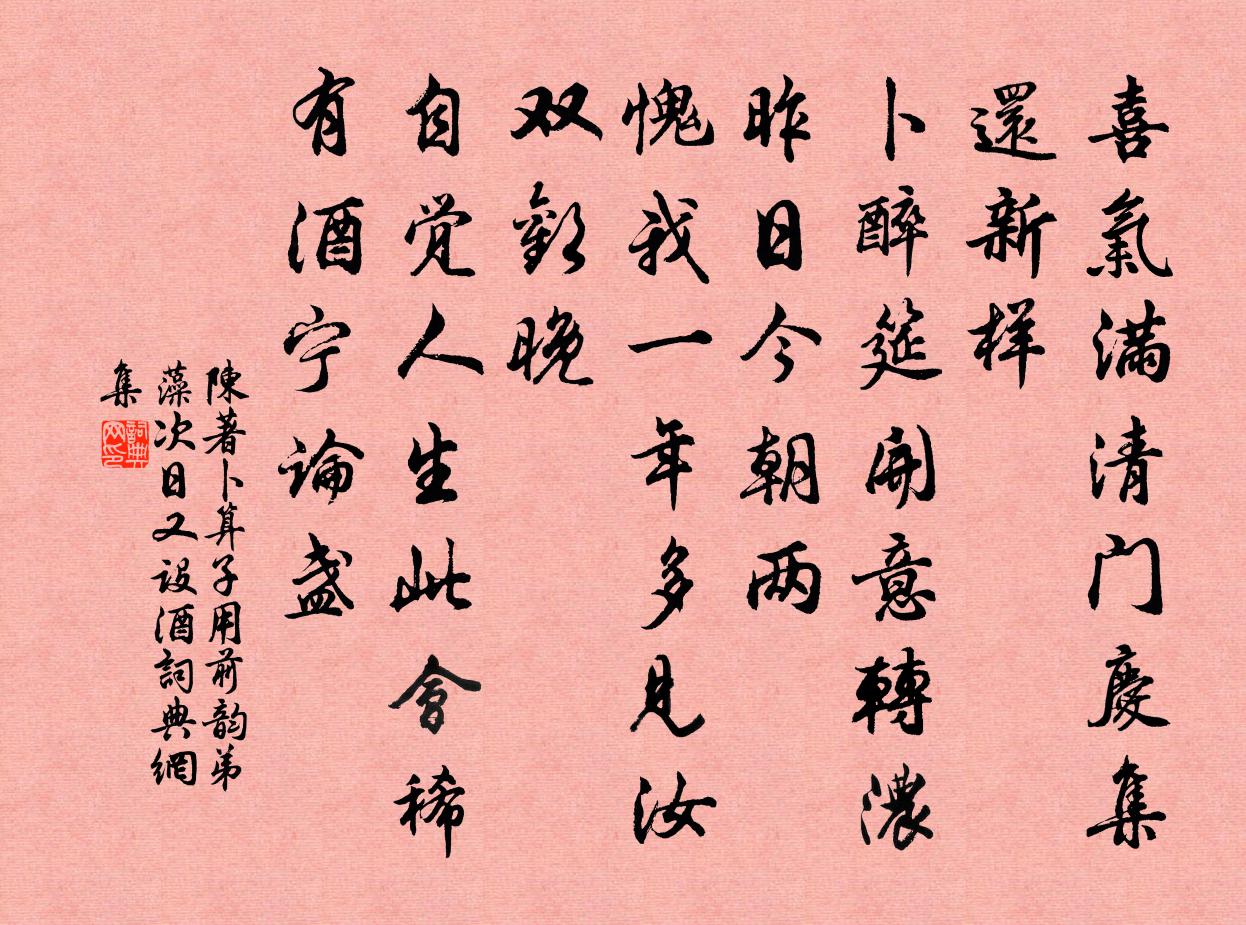 喜氣滿清门慶集
還新样
卜醉筵開意轉濃
昨日今朝两
愧我一年多見汝
双歡晚
自觉人生此會稀
有酒宁論盏
陳著卜算子用前韵弟
藻次日又设酒詞典網
集
詞典
网印